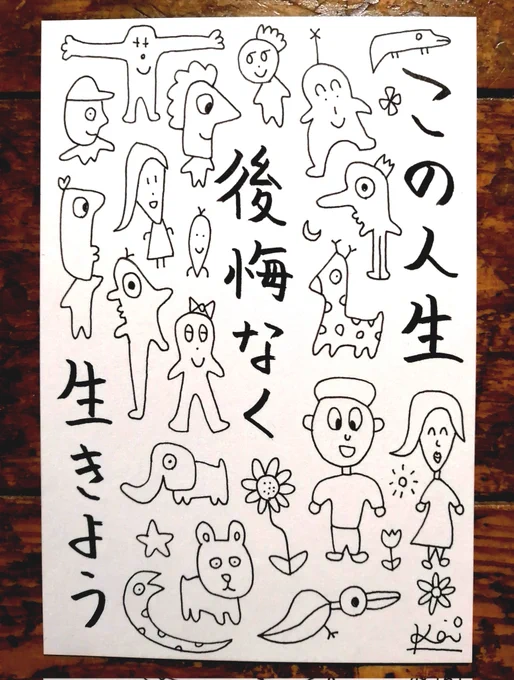 この人生
後悔なく
生きよう
Koi